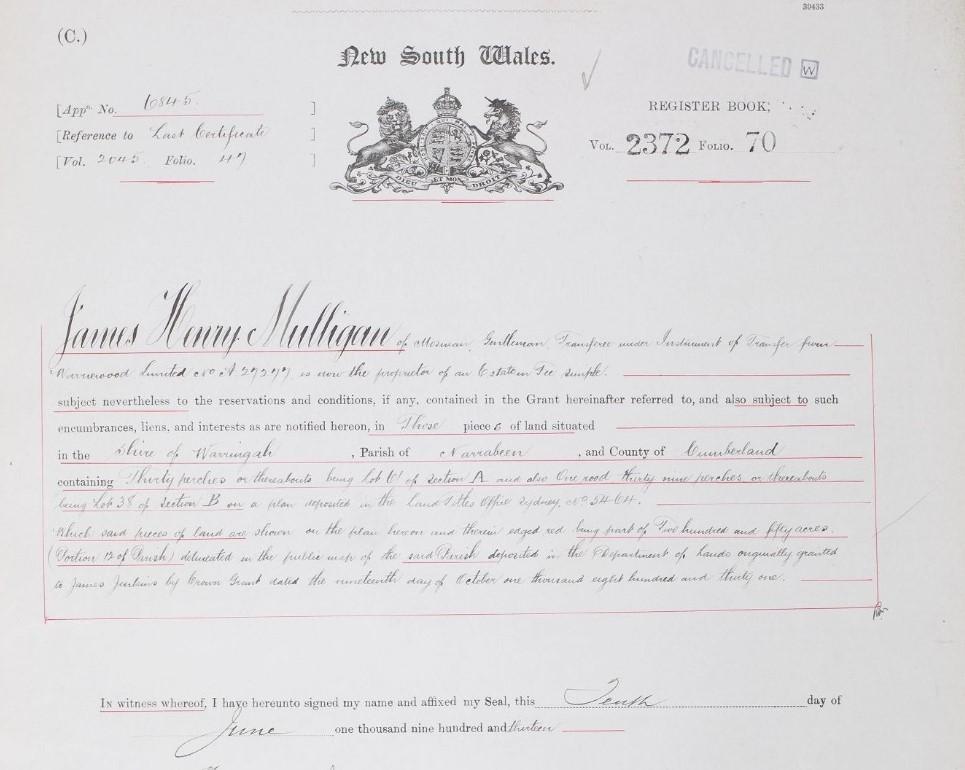 30433
(C.)
New South Wales.
CANCELLED W
[Appn. No. 16845. ]
[Reference to Last Certificate ]
[Vol. 2045 Folio. 47 ]
REGISTER BOOK,
Vol. 2372 Folio. 70
DIEU ET MON DROIT
James Henry Mulligan of Mosman, Gentleman, Transferee under Instrument of Transfer from
Warriewood Limited No A 27277 is now the proprietor of an Estate in Fee simple.
subject nevertheless to the reservations and conditions, if any, contained in the Grant hereinafter referred to, and also subject to such
encumbrances, liens, and interests as are notified hereon, in Those pieces of land situated
in the Shire of Warringah , Parish of Narrabeen , and County of Cumberland
containing Thirty perches or thereabouts being Lot of Section A and also One rood thirty nine perches or thereabouts
being Lot 38 of Section B on a plan deposited in the Land Titles Office Sydney No. 5464.
Which said pieces of land are shown on the plan hereon and therein edged red being part of Two hundred and fifty acres.
(Portion 12 of Parish) delineated in the public map of the said Parish deposited in the Department of Lands originally granted
to James Jenkins by Crown Grant dated the nineteenth day of October one thousand eight hundred and thirty one.
In witness whereof, I have hereunto signed my name and affixed my Seal, this Tenth day of
June one thousand nine hundred and thirteen